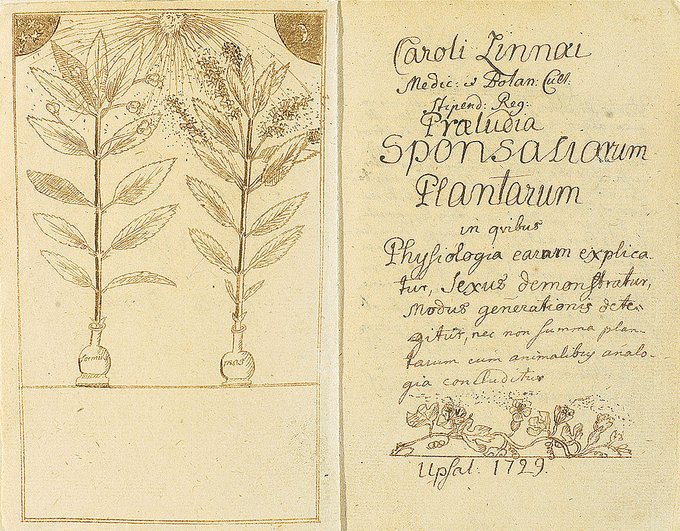 femina
mas
Caroli Linnæi
Medic: & Botan: Cult.
Stipend: Reg:
Præludia
Sponsaliarum
Plantarum
in qvibus
Physiologia earum explica-
tur, Sexus demonstratur,
Modus generationis dete-
gitur, nec non summa plan-
tarum cum animalibus analo-
gia concluditur
Upsal. 1729.